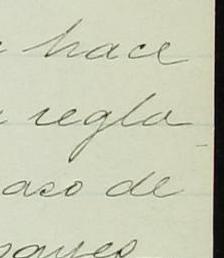 hace
regla
aso de